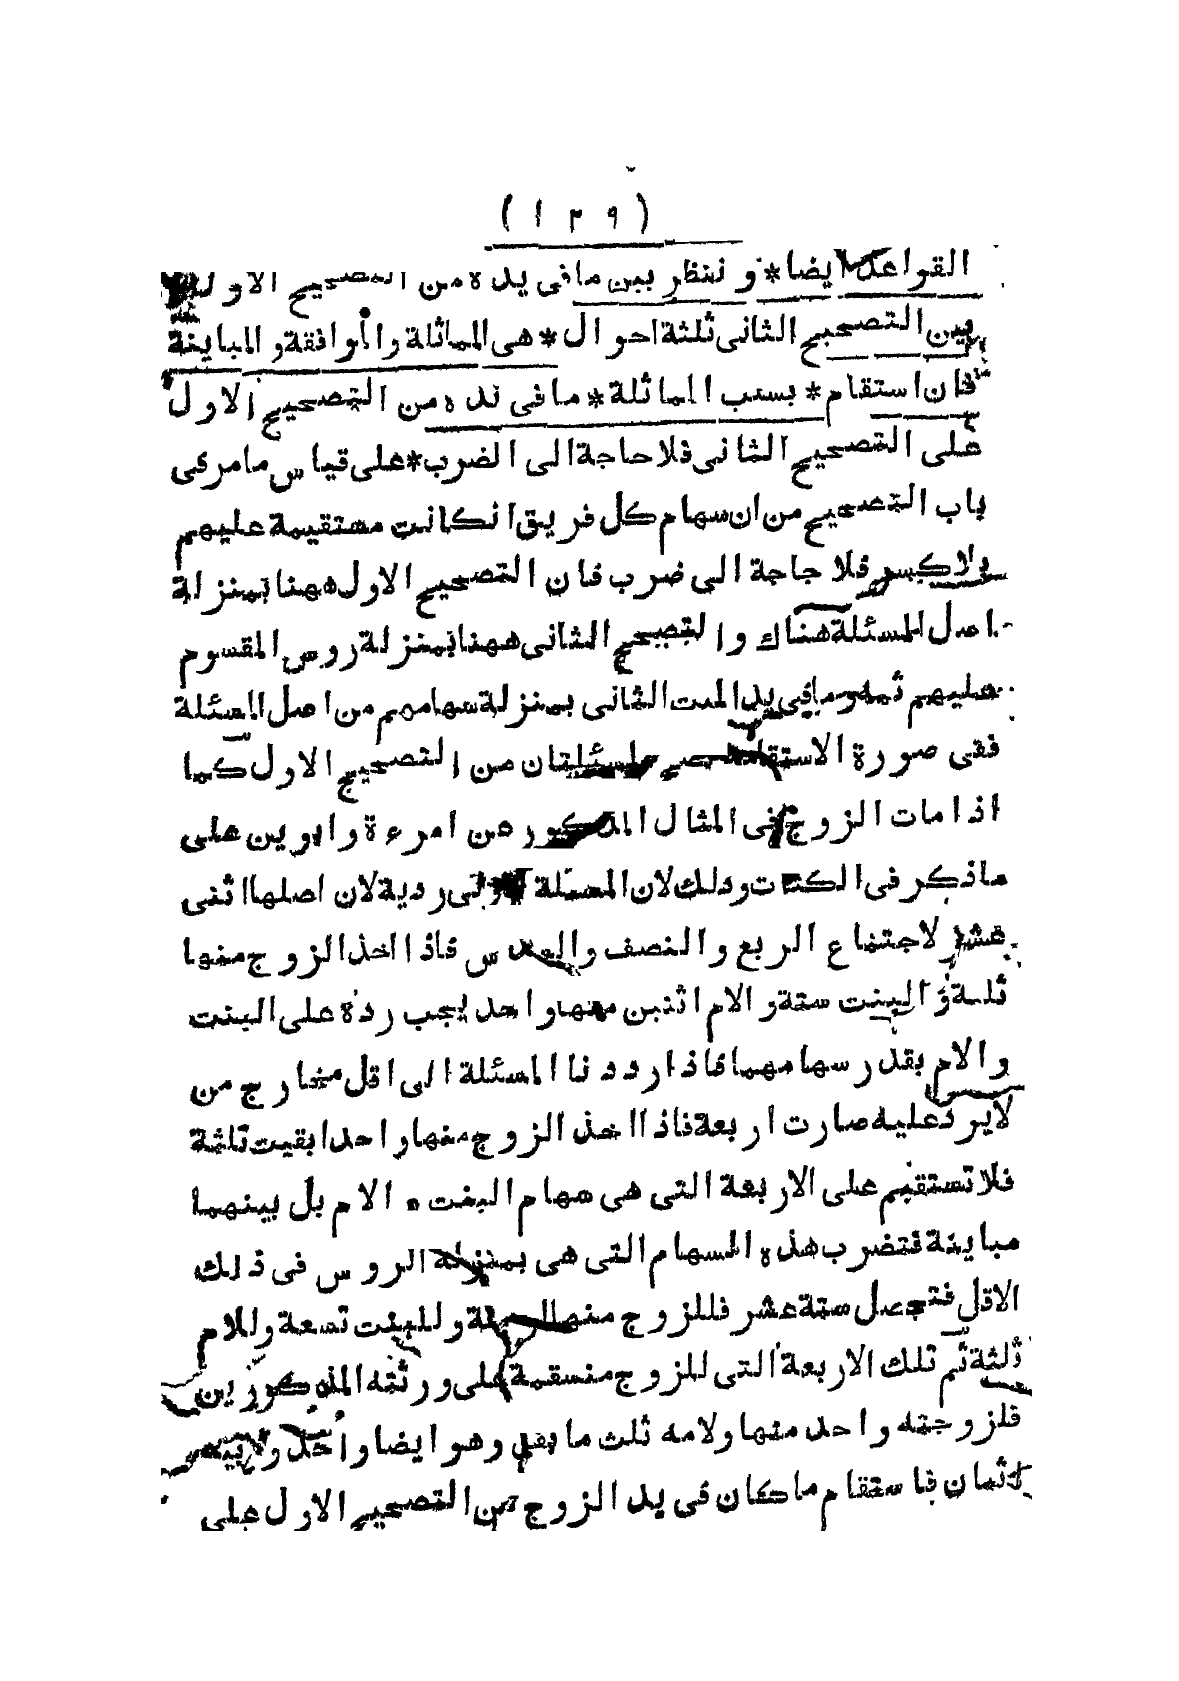 ( ١٢٩ )
القواعد ايضا * و ننظر بين ما فى يده من التصحيح الاول
بين التصحيح الثانى ثلثة احوال * هى المماثلة والموافقة و المباينة
فان استقام * بسبب المماثلة * ما فى يده من التصحيح الاول
على التصحيح الثانى فلا حاجة الى الضرب * على قياس ما مر فى
باب التصحيح من ان سهام كل فريق ان كانت مستقيمة عليهم
بلا كسر فلا حاجة الى ضرب فان التصحيح الاول ههنا بمنزلة
اصل المسئلة هناك و التصحيح الثانى ههنا بمنزلة روس المقسوم
عليهم ثمه و ما فى يد الميت الثانى بمنزلة سهامهم من اصل المسئلة
ففى صورة الاستقامة تصح المسئلتان من التصحيح الاول كما
اذا مات الزوج فى المثال المذكور عن امرءة وابوين على
ما ذكر فى الكتاب وذلك لان المسئلة الاولى ردية لان اصلها اثنى
عشر لاجتماع الربع و النصف والسدس فاذا اخذ الزوج منها
ثلثة و البنت ستة و الام اثنين منها واحد يجب رده على البنت
والام بقدر سهامهما فاذا رددنا المسئلة الى اقل مخارج من
لايرد عليه صارت اربعة فاذا اخذ الزوج منها واحدا بقيت ثلثة
فلا تستقيم على الاربعة التى هى سهام البنت و الام بل بينهما
مباينة فتضرب هذه السهام التى هى بمنزلة الروس فى ذلك
الاقل فتحصل ستة عشر فللزوج منها اربعة و للبنت تسعة وللام
ثلثة ثم تلك الاربعة التى للزوج منسقمة على ورثته المذكورين
فلزوجته واحد منها ولامه ثلث ما بقى وهو ايضا واحد ولابيه
اثنان فاستقام ما كان فى يد الزوج من التصحيح الاول على